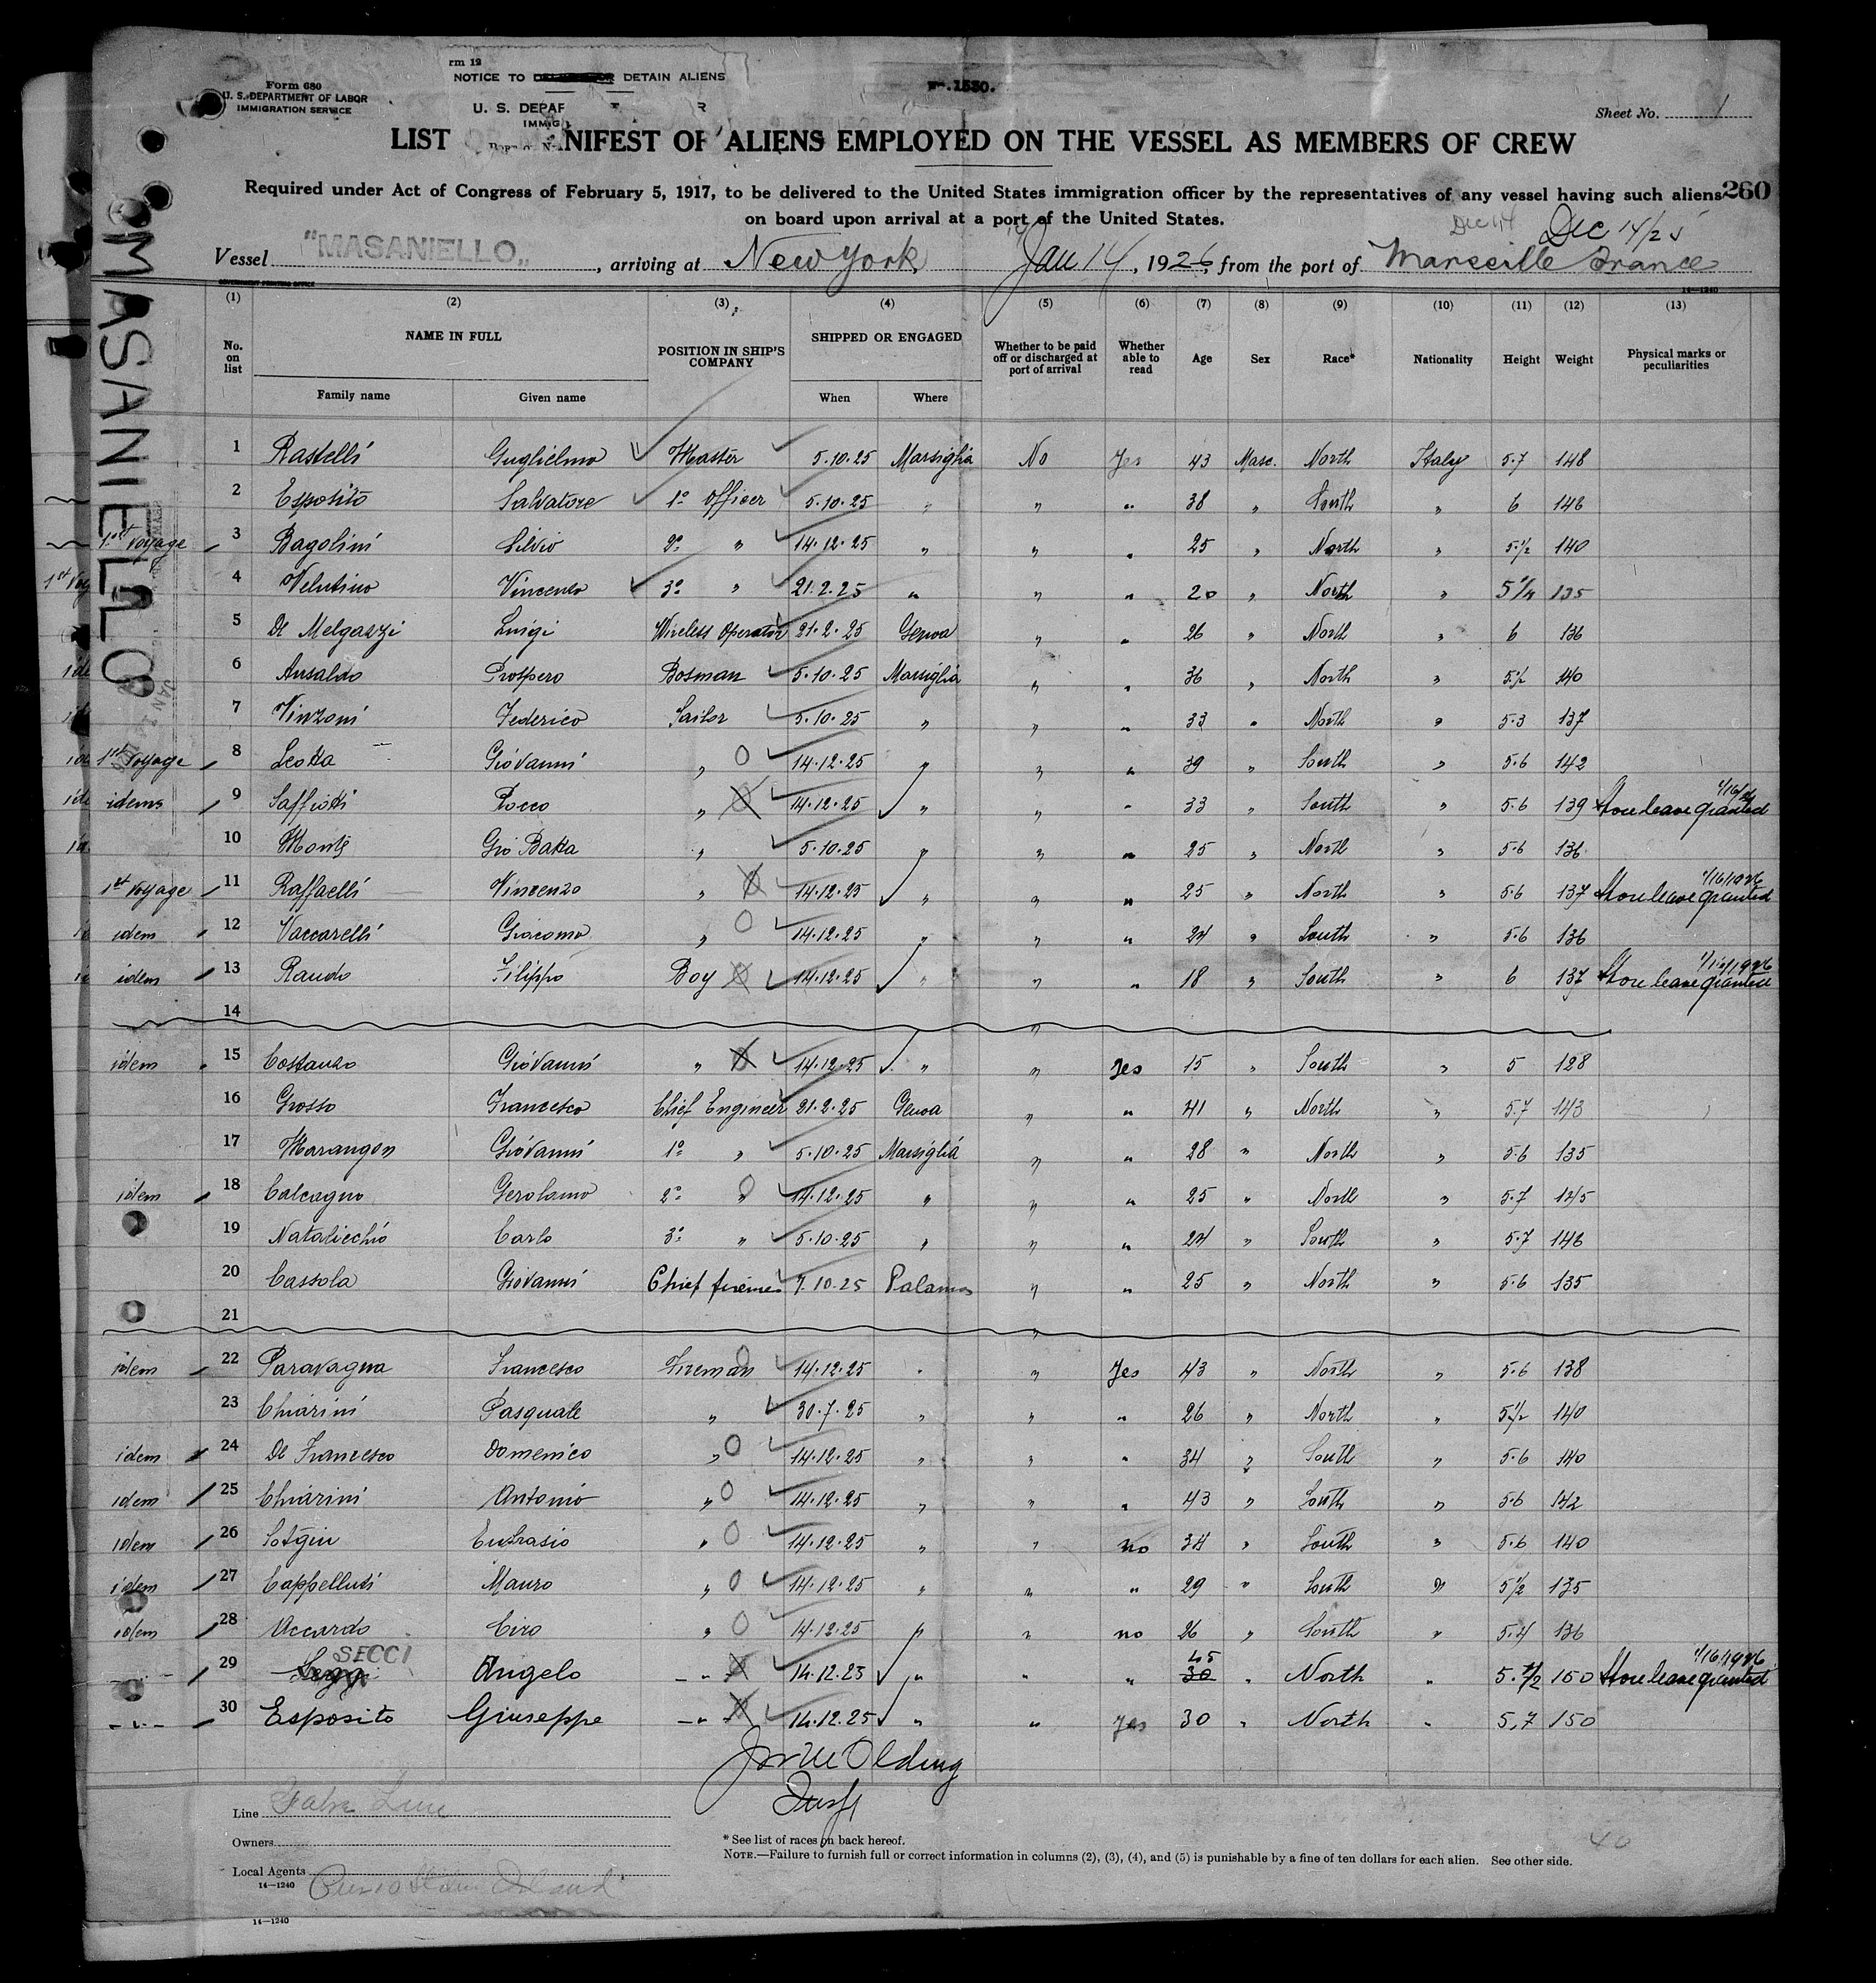 Form 680
U. S. DEPARTMENT OF LABOR
IMMIGRATION SERVICE
rm 12
NOTICE TO DETAIN ALIENS
U. S. DEPAR
IMMIG
1530.
Sheet No. 1
LIST NIFEST OF ALIENS EMPLOYED ON THE VESSEL AS MEMBERS OF CREW
Required under Act of Congress of February 5, 1917, to be delivered to the United States immigration officer by the representatives of any vessel having such aliens 260
on board upon arrival at a port of the United States.
Dec 14 Dec 14/25
Vessel "MASANIELLO", arriving at New York Jan 14, 1926, from the port of Marseille France
MASANIELLO
GOVERNMENT PRINTING OFFICE
14—1240
(1) (2) (3) (4) (5) (6) (7) (8) (9) (10) (11) (12) (13)
No. on list NAME IN FULL POSITION IN SHIP'S COMPANY SHIPPED OR ENGAGED Whether to be paid off or discharged at port of arrival Whether able to read Age Sex Race* Nationality Height Weight Physical marks or peculiarities
Family name Given name When Where
1 Rastelli Guglielmo Master 5.10.25 Marsiglia No Yes 43 Masc. North Italy 5.7 148
2 Esposito Salvatore 1° Officer 5.10.25 " " " 38 " South " 6 146
1st Voyage 3 Bagolini Silvio 2° " 14.12.25 " " " 25 " North " 5.1/2 140
4 Velutino Vincenzo 3° " 21.2.25 " " " 20 " North " 5 1/4 135
5 De Melgazzi Luigi Wireless Operator 21.2.25 Genoa " " 26 " North " 6 136
6 Ansaldo Prospero Bosman 5.10.25 Marsiglia " " 36 " North " 5.1/2 140
7 Vinzoni Federico Sailor 5.10.25 " " " 33 " North " 5.3 137
1st Voyage 8 Leotta Giovanni " 14.12.25 " " " 39 " South " 5.6 142
idem 9 Saffioti Rocco " 14.12.25 " " " 33 " South " 5.6 139 Shore leave granted
10 Gio Batta " 5.10.25 " " " 25 " North " 5.6 136
1st Voyage 11 Raffaelli Vincenzo " 14.12.25 " " " 25 " North " 5.6 137 Shore leave granted 1/16/1926
idem 12 Vaccarelli Giacomo " 14.12.25 " " " 24 " South " 5.6 136
idem 13 Raudo Filippo Boy 14.12.25 " " " 18 " South " 6 137 Shore leave granted 1/16/1926
14 "
idem 15 Costanzo Giovanni " 14.12.25 " " Yes 15 " South " 5 128
16 Grosso Francesco Chief Engineer 21.2.25 Genoa " " 41 " North " 5.7 143
17 Marangon Giovanni 1° " 5.10.25 Marsiglia " " 28 " North " 5.6 135
idem 18 Calcagno Gerolamo 2° " 14.12.25 " " " 25 " North " 5.7 145
19 Natalicchio Carlo 3° " 5.10.25 " " " 24 " South " 5.7 146
20 Cassola Giovanni Chief 7.10.25 Palamos " " 25 " North " 5.6 135
21 "
idem 22 Paravagna Francesco Fireman 14.12.25 " " Yes 43 " North " 5.6 138
23 Chiarini Pasquale " 30.7.25 " " " 26 " North " 5 1/2 140
idem 24 De Francesco Domenico " 14.12.25 " " " 34 " South " 5.6 140
idem 25 Chiarini Antonio " 14.12.25 " " " 43 " South " 5.6 142
idem 26 Sotgiu Eufrasio " 14.12.25 " " no 34 " South " 5.6 140
idem 27 Cappelluti Mauro " 14.12.25 " " " 29 " South " 5 1/2 135
idem 28 Accardo Ciro " 14.12.25 " " no 26 " South " 5.4 136
SECCI 45
29 Angelo " 14.12.25 " " " 30 " North " 5.1/2 150 Shore leave granted 1/16/1926
30 Esposito Giuseppe " 14.12.25 " " Yes 30 " North " 5,7 150
Line Fabre Line
Owners
Local Agents
14—1240
* See list of races on back hereof.
NOTE.—Failure to furnish full or correct information in columns (2), (3), (4), and (5) is punishable by a fine of ten dollars for each alien. See other side.
14—1240